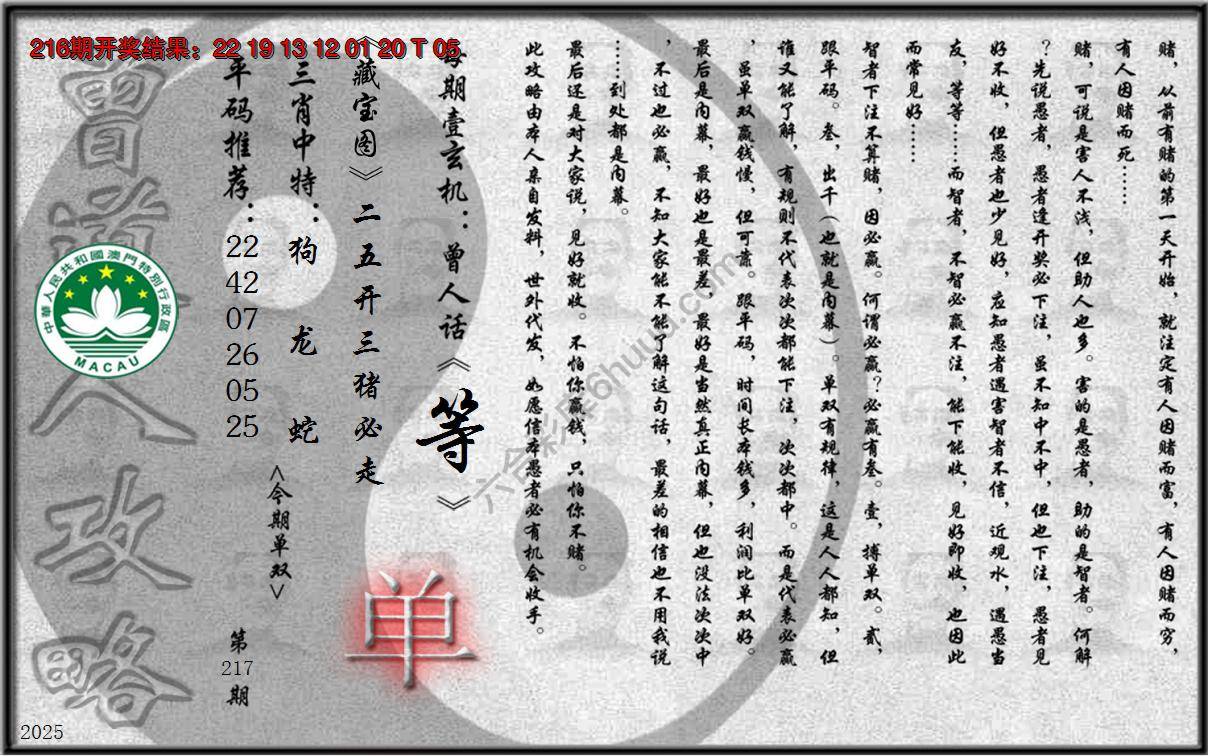 216期开奖结果：22 19 13 12 01 20 T 05
赌，从前有赌的第一天开始，就注定有人因赌而富，有人因赌而穷，
有人因赌而死……
赌，可说是害人不浅，但助人也多。害的是愚者，助的是智者。何解
？先说愚者，愚者逢开奖必下注，虽不知中不中，但也下注，愚者见
好不收，但愚者也少见好，应知愚者遇害智者不信，近观水，遇愚当
友，等等……而智者，不智必赢不注，能下能收，见好即收，也因此
而常见好……
智者下注不算赌，因必赢。何谓必赢？必赢有叁。壹，搏单双。贰，
跟平码。叁，出千（也就是内幕）。单双有规律，这是人人都知，但
谁又能了解，有规则不代表次次都能下注，次次都中。而是代表必赢
，虽单双赢钱慢，但可靠。跟平码，时间长本钱多，利润比单双好。
最后是内幕，最好也是最差，最好是当然真正内幕，但也没法次次中
，不过也必赢，不知大家能不能了解这句话，最差的相信也不用我说
……到处都是内幕。
最后还是对大家说，见好就收。不怕你赢钱，只怕你不赌。
此攻略由本人亲自发料，世外代发，如愿信本愚者必有机会收手。
每期壹玄机：曾人话《等》
《藏宝图》二五开三猪必走
单
三肖中特：狗 龙 蛇
<今期单双>
平码推荐：22 42 07 26 05 25
第217期
曾道人攻略
中華人民共和國澳門特別行政區
MACAU
2025